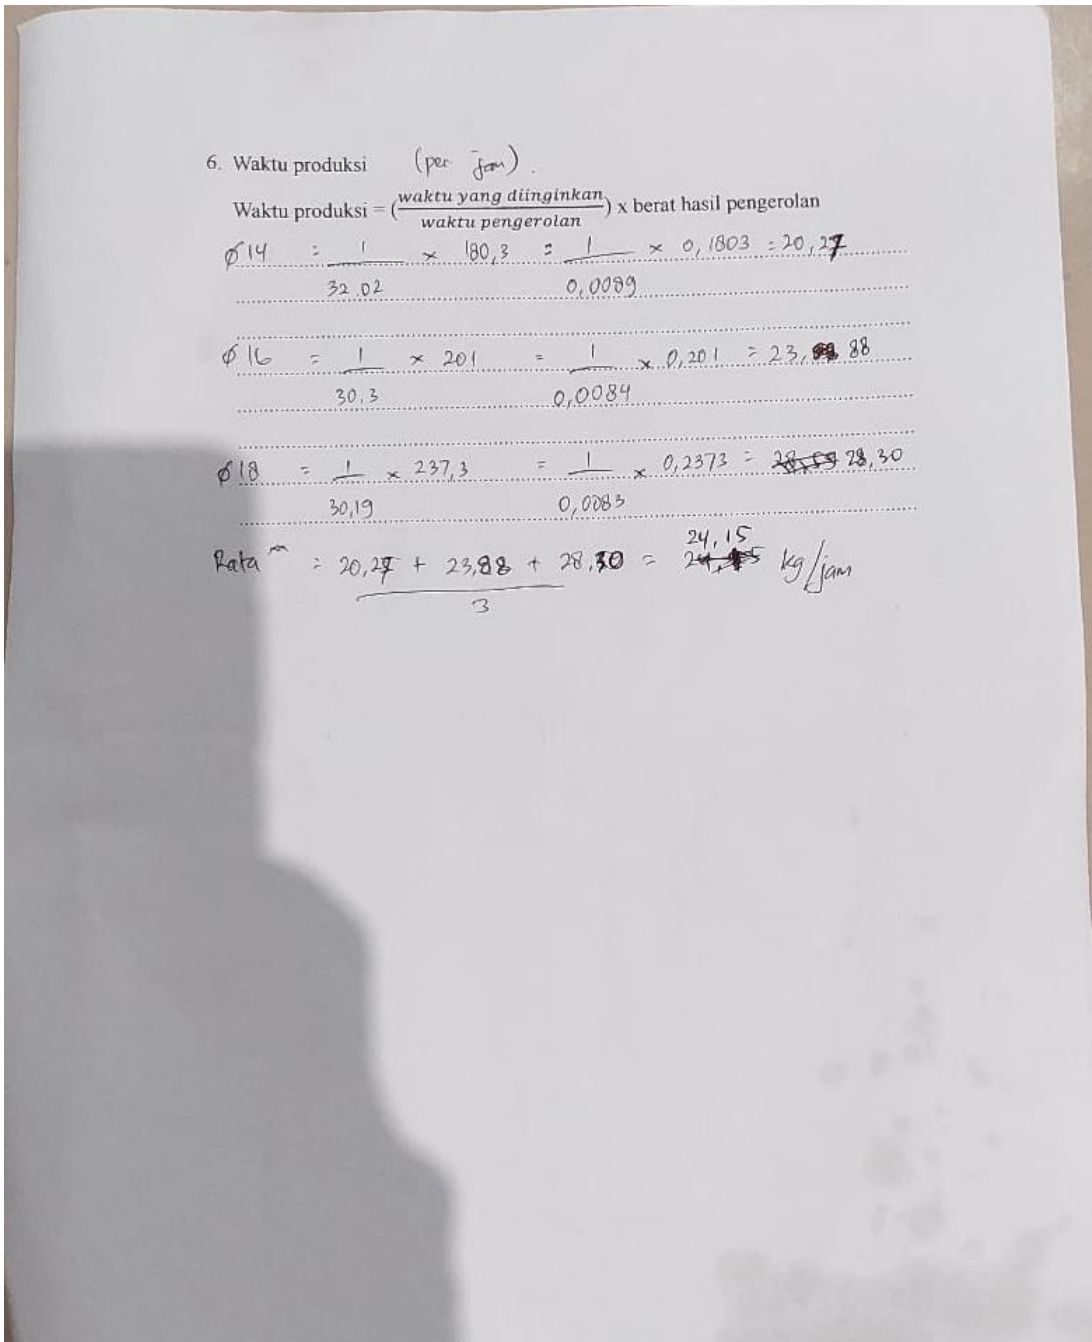 6. Waktu produksi (per jam).
Waktu produksi = (waktu yang diinginkan / waktu pengerolan) x berat hasil pengerolan
ø 14 = 1 / 32.02 × 180,3 = 1 / 0,0089 × 0,1803 = 20,27
ø 16 = 1 / 30,3 × 201 = 1 / 0,0084 × 0,201 = 23,88
ø 18 = 1 / 30,19 × 237,3 = 1 / 0,0083 × 0,2373 = 28,30
Rata = 20,27 + 23,88 + 28,30 / 3 = 24,15 kg/jam